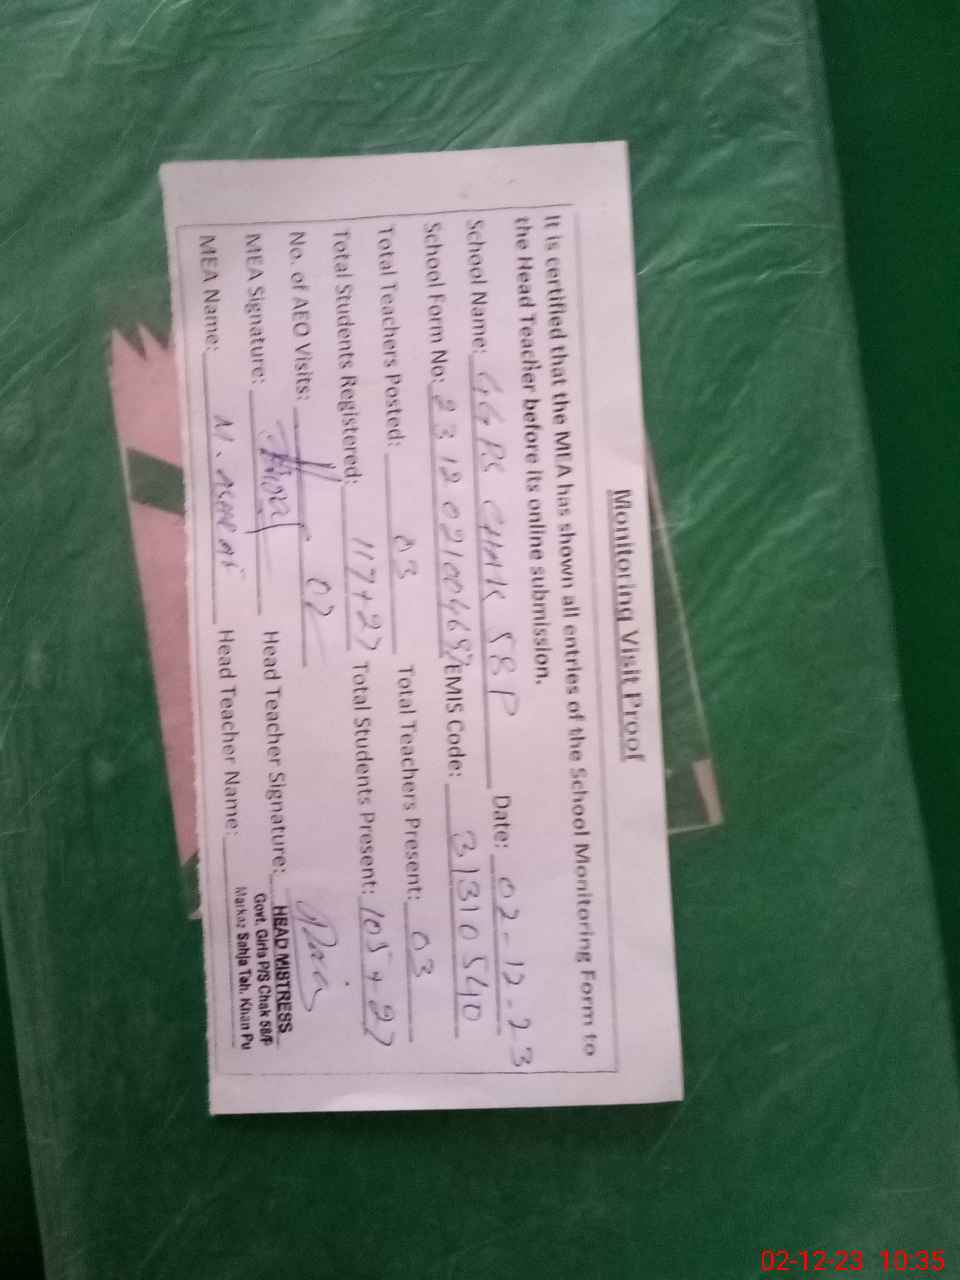 Monitoring Visit Proof
It is certified that the MEA has shown all entries of the School Monitoring Form to
the Head Teacher before its online submission.
School Name: GGPS CHAK 58P Date: 02-12-23
School Form No: EMIS Code: 31310540
Total Teachers Posted: 03 Total Teachers Present: 03
Total Students Registered: 117+27 Total Students Present: 105+27
No. of AEO Visits: 02
MEA Signature: Head Teacher Signature:
MEA Name: Head Teacher Name:
HEAD MISTRESS
Govt. Girls P/S Chak 58/P
Markaz Sahja Tah. Khan Pu
02-12-23 10:35